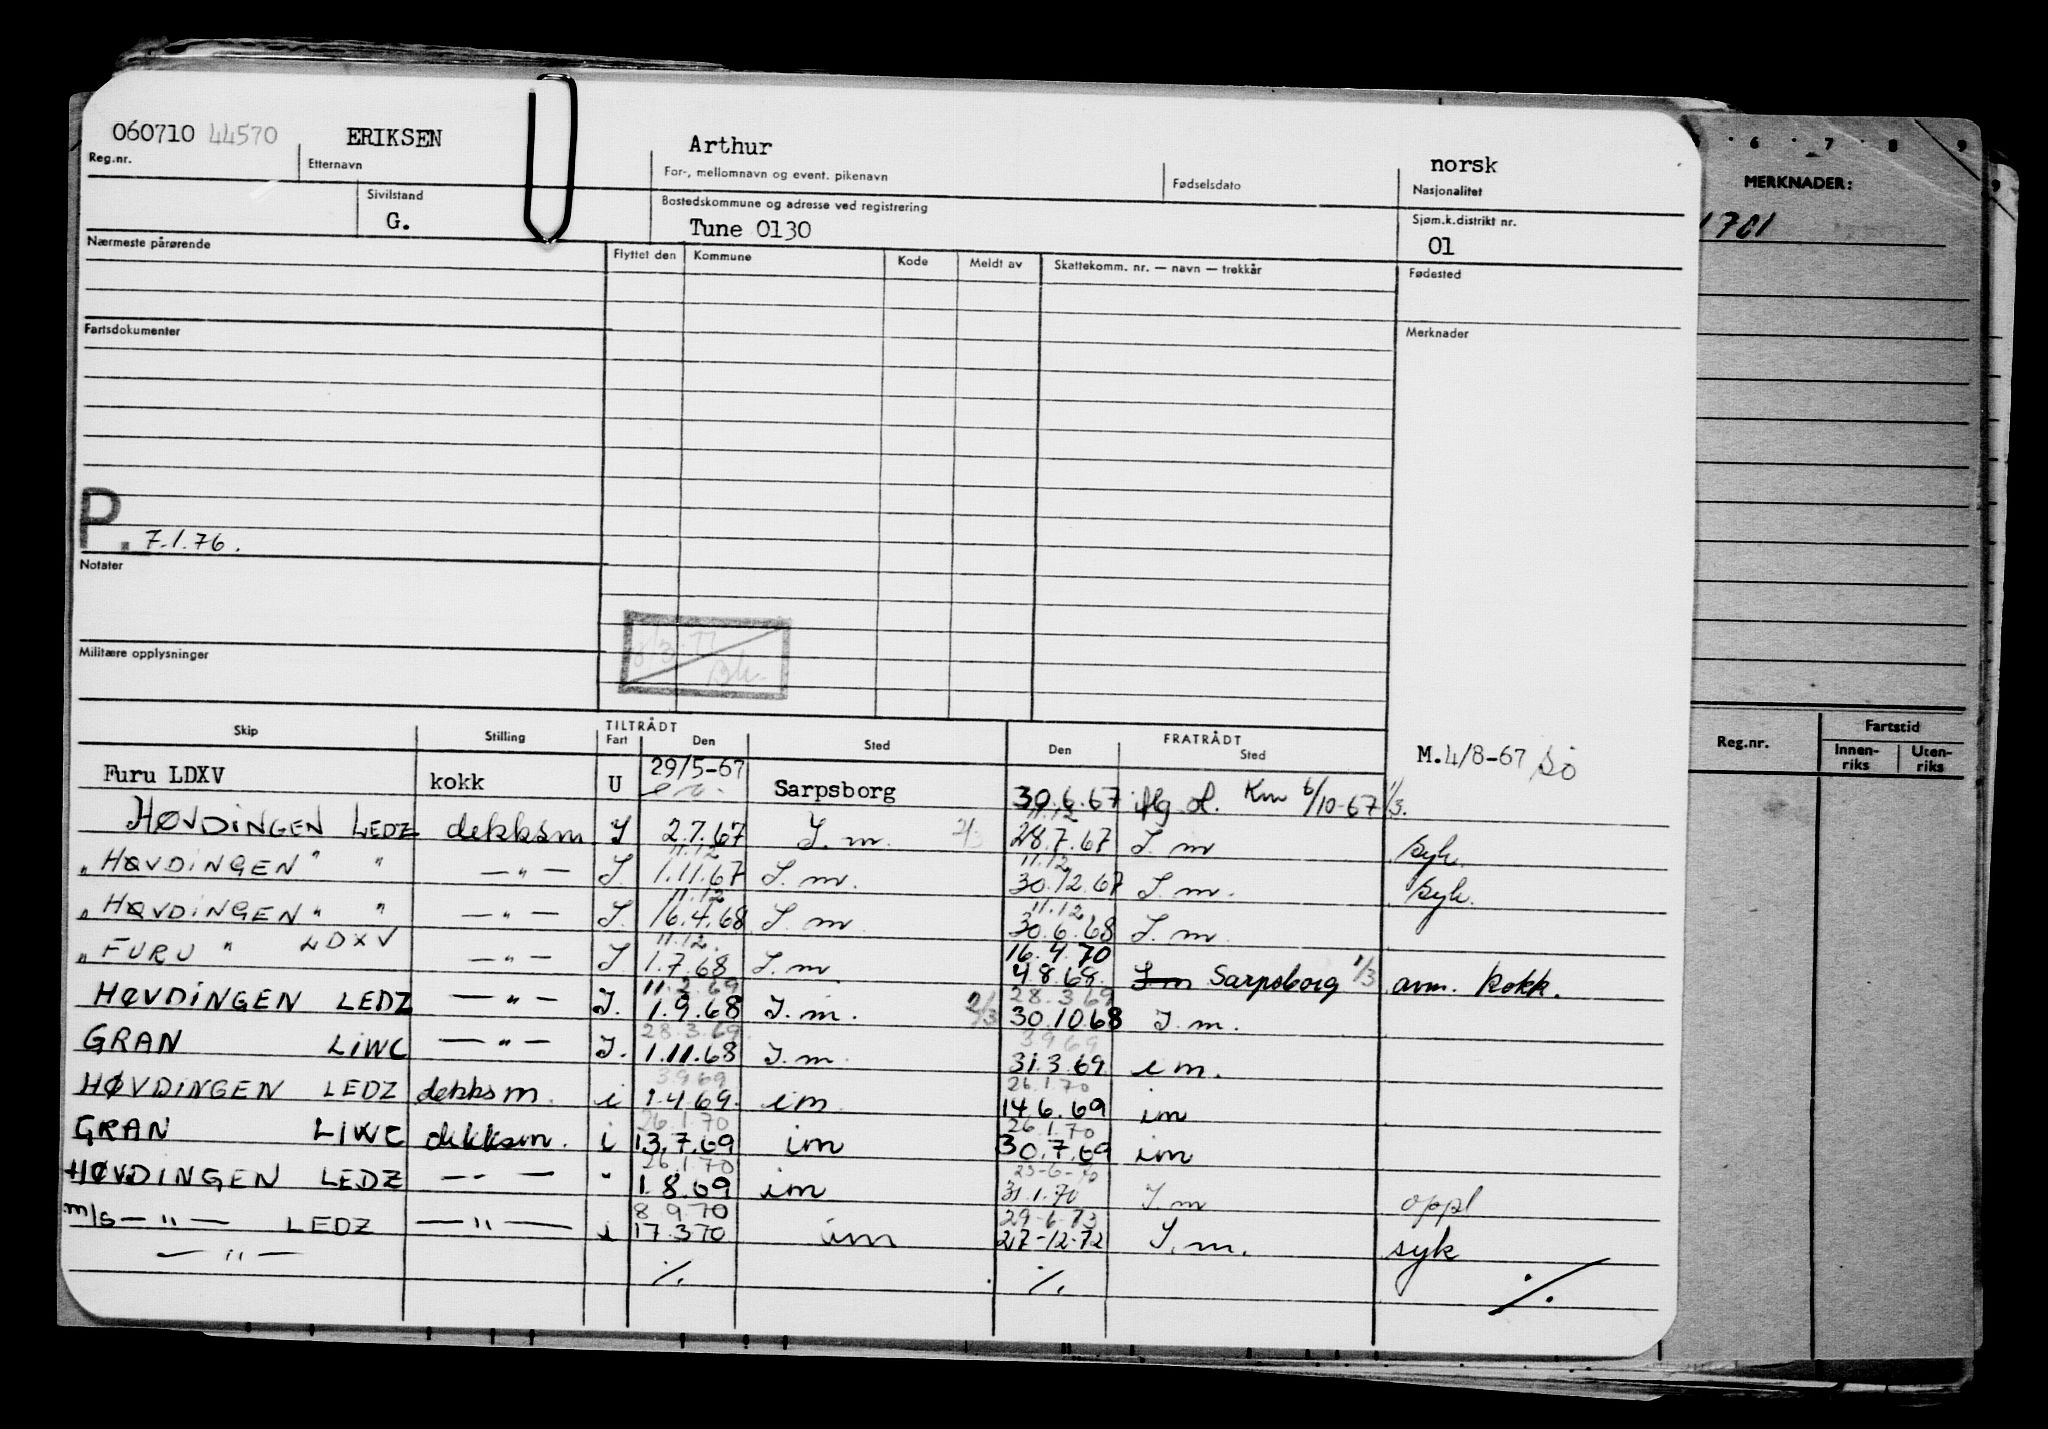 060710 44570 ERIKSEN Arthur norsk
Reg.nr. Etternavn For-, mellomnavn og event. pikenavn Fødselsdato Nasjonalitet
Sivilstand Bostedskommune og adresse ved registrering Sjøm.k.distrikt nr.
G. Tune 0130 01
Nærmeste pårørende Flyttet den Kommune Kode Meldt av Skattekomm. nr. — navn — trekkår Fødested
Fartsdokumenter Merknader
P. 7.1.76.
Notater
Militære opplysninger
Skip Stilling TILTRÅDT Fart Den Sted FRATRÅDT Den Sted
M.4/8-67 Sö
Furu LDXV kokk U 29/5-67 Sarpsborg 30.6.67 Km 6/10-67 1/3.
11.12
HØVDINGEN LEDZ dekksm J 2.7.67 J.m. 2/3 28.7.67 J.m syk.
11.12 11.12
"HØVDINGEN" " —"— J. 1.11.67 J.m. 30.12.67 J.m. syk.
11.12 11.12
"HØVDINGEN" " —"— J. 16.4.68 J.m 30.6.68 J.m.
11.12. 16.4.70
"FURU" LDXV —"— J 1.7.68 J.m 4.8.68. J.m Sarpsborg 1/3 avm. kokk.
11.2.69 28.3.69
HØVDINGEN LEDZ —"— J. 1.9.68 J.m. 2/3 30.10.68 J.m.
28.3.69. 3.9.69
GRAN LIWC —"— J. 1.11.68 J.m. 31.3.69. i m.
3.9.69 26.1.70
HØVDINGEN LEDZ dekksm. i 1.4.69. im 14.6.69 im
26.1.70 26.1.70
GRAN LIWC dekksm. i 13.7.69 im 30.7.69 im
26.1.70 23-6-70
HØVDINGEN LEDZ —"— " 1.8.69 im 31.1.70 J.m oppl
8.9.70 29-6-73
m/s —"— LEDZ —"— i 17.3.70 im 27-12-72 J.m. syk
—"— ./. ./. ./.
5 6 7 8 9
MERKNADER:
1701
Reg.nr. Fartstid
Innenriks Utenriks